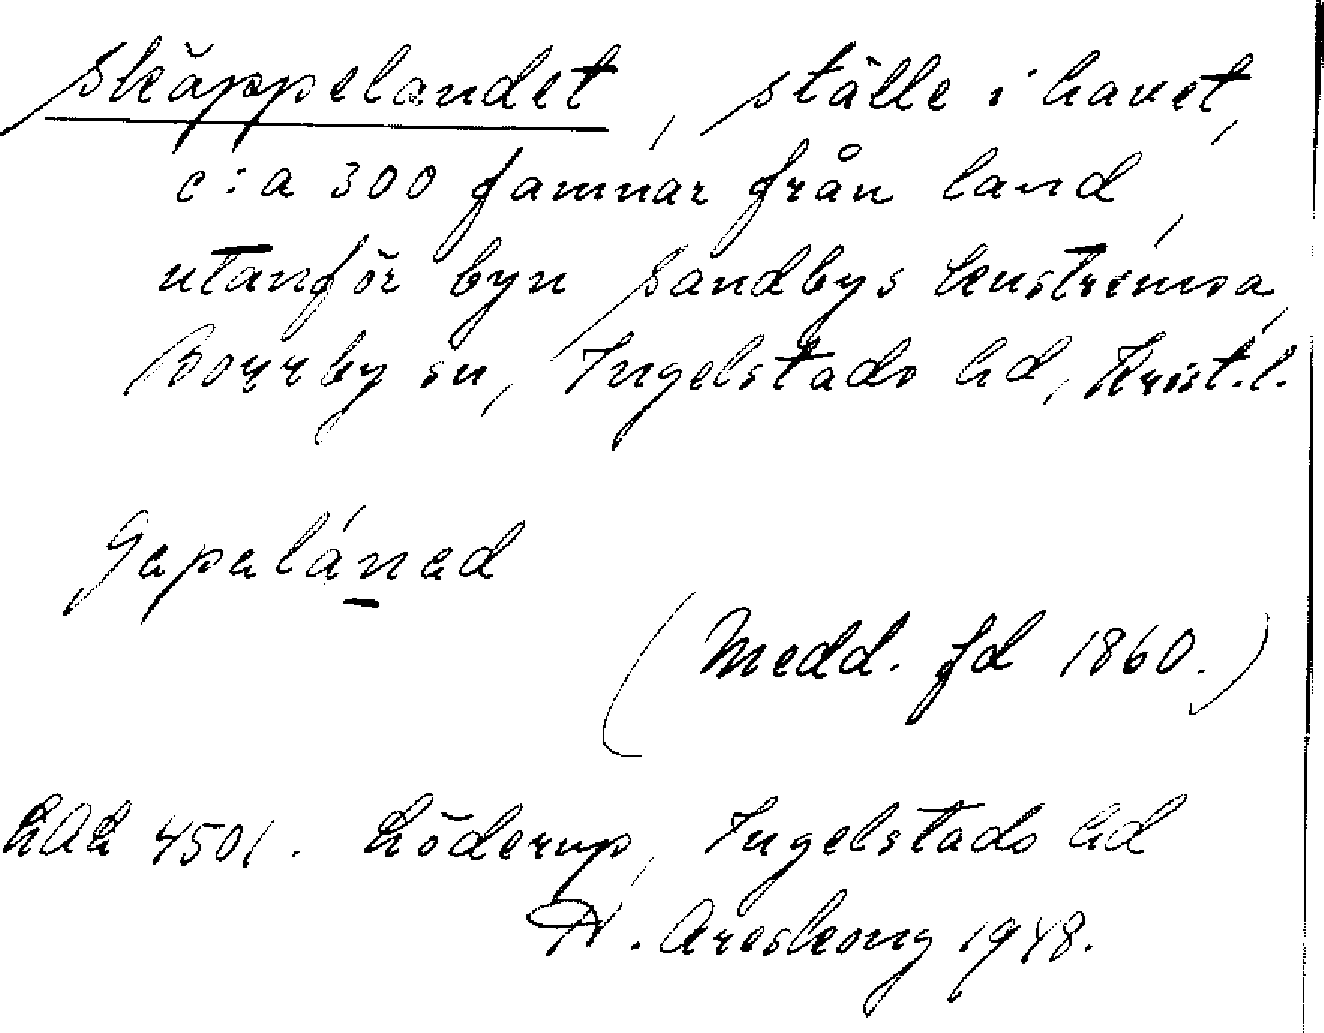 Skäppelandet, ställe i havet,
c:a 300 famnar från land,
utanför byn Sandbys kuströmsa,
Borrby sn, Ingelstads hd, Krist.l.
(Medd. fd 1860.)
LAL 4501. Löderup, Ingelstads hd
N. Areskoug 1948.